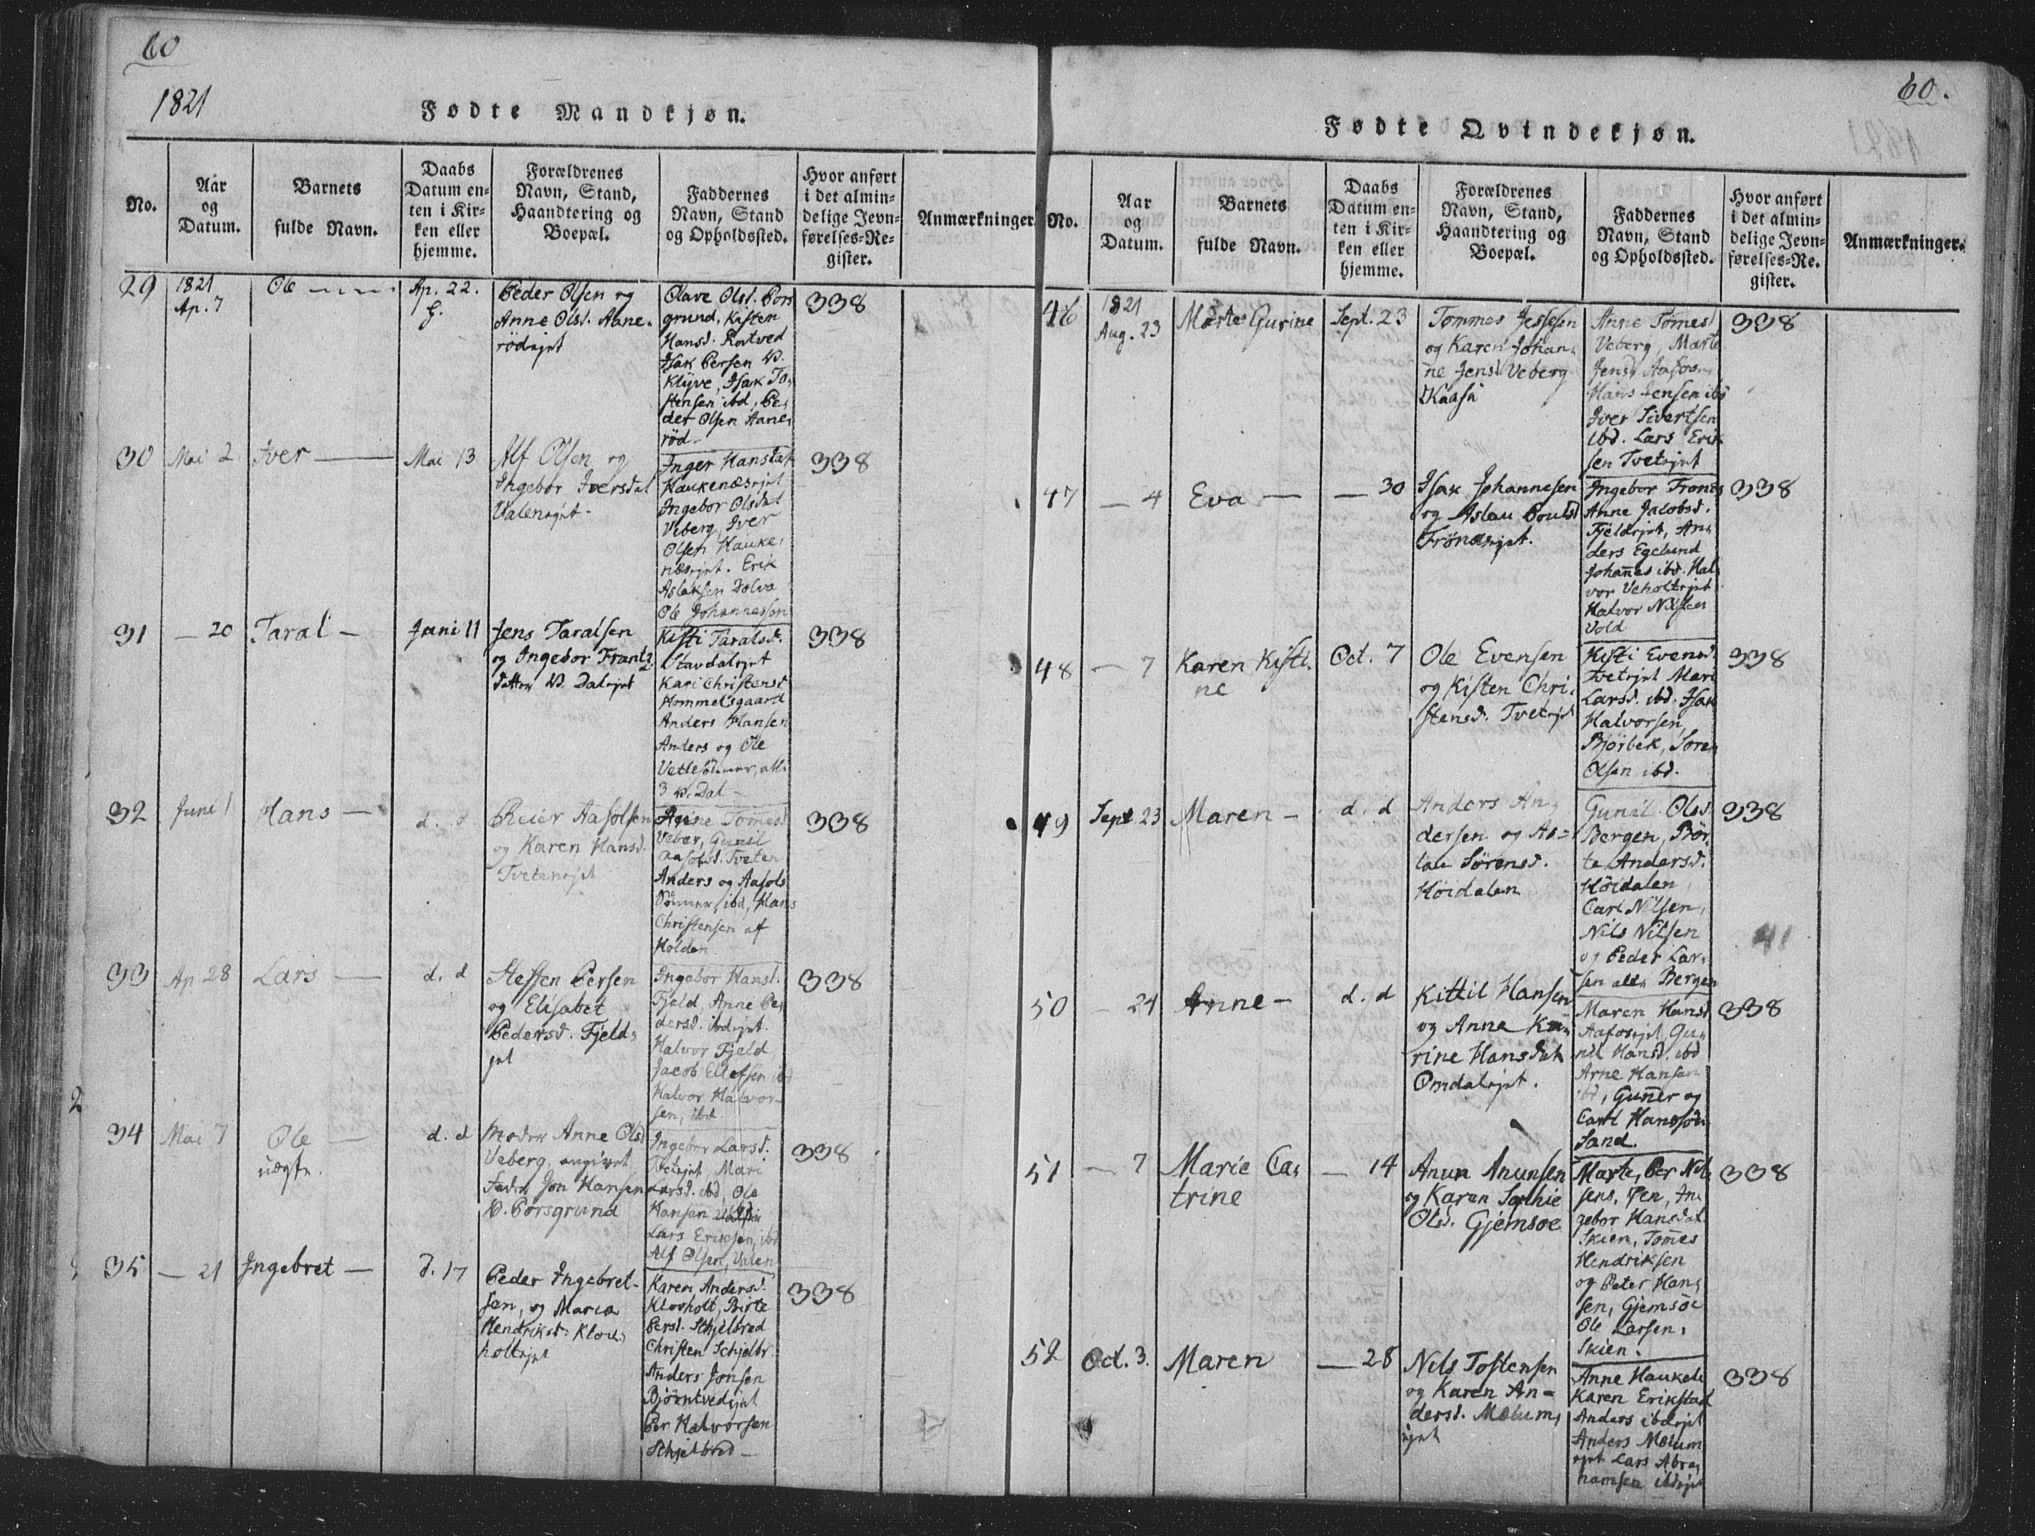 60
1821
Fødte Mandkjøn.
No.
Aar
og
Datum.
Barnets
fulde Navn.
Daabs
Datum en-
ten i Kir-
ken eller
hjemme.
Forældrenes
Navn, Stand,
Haandtering og
Boepæl.
Faddernes
Navn, Stand
og Opholdssted.
Hvor anført
i det almin-
delige Jevn-
førelses-Re-
gister.
Anmærkninger.
29
1821
Ap. 7
Ole
Ap. 22.
Peder Olsen og
Anne Olsd. Aane-
rödejet
Olave Olsd. Pors
grund, Kisten
Hansd. Rotved
Isak Persen
Klyve, Isak To-
stensen ibd, Pe-
der Olsen Aane-
röd
338
30
Mai 2
Iver
Mai 13
Alf Olsen og
Ingebor Iversdat
Valenejet
Inger Hansdat
Haukenæsejet
Ingebor Olsdat
Veberg, Iver
Olsen Hauke-
næsejet. Erik
Aslaksen Dolva
Ole Johannessen
338
31
— 20
Taral —
Juni 11
Jens Taralsen
og Ingebor Frantz
datter V. Dalejet
Kisti Taralsd.
Stavdalejet
Kari Christensd
Hommelsgaard
Anders Hansen
Anders og Ole
Vetlesönner, alle
3 V. Dal —
338
32
Juni 1
Hans —
d. d
Reier Aasolsen
og Karen Hansd.
Tvetenejet
Anne Tomesd
Veber, Gunil
Aasolsd. Tveten
Anders og Aasols
Sönner, ibd, Hans
Christensen af
Holden
338
33
Ap 28
Lars —
d. d
Steffen Persen
og Elisabet
Pedersd. Fjeld-
jet
Ingebor Hansd.
Fjeld, Anne Pe-
dersd. ibdejet.
Halvor Fjeld
Jacob Ellefsen ibd
Halvor Halvor-
sen, ibd
338
34
Mai 7
Ole —
uægte.
d. d
Moder Anne Olsd
Veberg, angivet
Fader Jon Hansen
V. Porsgrund
Ingebor Larsd.
Tvetejet, Mari
Larsd. ibd, Ole
Hansen
Lars Eriksen, ibd
Alf Olsen, Valen
338
35
— 21
Ingebret —
d. 17
Peder Ingebret-
sen, og Maria
Hendriksd. Klov-
holtejet
Karen Andersd.
Klovholt, Birte
Persd. Schjelbred
Christen Schjelbr.
Anders Jonsen
Bjørntvedejet
Per Halvorsen
Schjelbred —
338
60.
Fødte Qvindekjøn.
No.
Aar
og
Datum.
Barnets
fulde Navn.
Daabs
Datum en-
ten i Kir-
ken eller
hjemme.
Forældrenes
Navn, Stand,
Haandtering og
Boepæl.
Faddernes
Navn, Stand
og Opholdssted.
Hvor anført
i det almin-
delige Jevn-
førelses-Re-
gister.
Anmærkninger.
46
1821
Aug. 23
Marte Gurine
Sept. 23
Tommes Jessesen
og Karen Johan-
ne Jensd Veberg
Kaasa
Anne Tomesd
Veberg, Marte
Jensd Aafos
Hans Jensen ibd
Iver Sivertsen
ibd. Lars Erik
sen Tvetejet
338
47
— 4
Eva —
— 30
Isak Johannesen
og Aslau Poulsd
Frönæsejet.
Ingebor Frones
Anne Jacobsd.
Fjeldejet, An-
ders Egelund
Johanes ibd. Hal
vor Veholtejet
Halvor Nilsen
Vold
338
48
— 7
Karen Kisti-
ne
Oct. 7
Ole Evensen
og Kisten Chri-
stensd. Tvetejet
Kisti Evensd.
Tvetejet Mari
Larsd. ibd. Isak
Halvorsen,
Bjørbek, Soren
Olsen ibd.
338
49
Sept. 23
Maren —
d. d
Anders An-
dersen og As-
lau Sörensd.
Höidalen
Gunil Olsd
Bergen, Bör-
te Andersd.
Höidalen,
Carl Nilsen,
Nils Nilsen
og Peder Lar-
sen alle Bergen
338
41
50
— 24
Anne —
d. d
Kittil Hansen
og Anne Ka-
rine Hansdat
Omdalejet.
Maren Hansd
Aafosejet, Gu-
nil Hansd. ibd
Arne Hansen
ibd, Guner og
Carl Hanssön
Sand.
338
51
— 7
Marie Ca-
trine
— 14
Anun Anunsen
og Karen Sophie
Olsd. Gjemsøe
Marte, Per Nil
sens, Øen, In
gebor Hansdat
Skien, Tomes
Hendriksen
og Peter Han-
sen, Gjemsöe
Ole Larsen,
Skien.
338
52
Oct. 3.
Maren
— 28
Nils Tostensen
og Karen An-
dersd. Mælum-
ejet
Anne Haukeli
Karen Erikstad
Anders ibdejet
Anders Mælum
ejet Lars Abra-
hamsen ibdejet
338